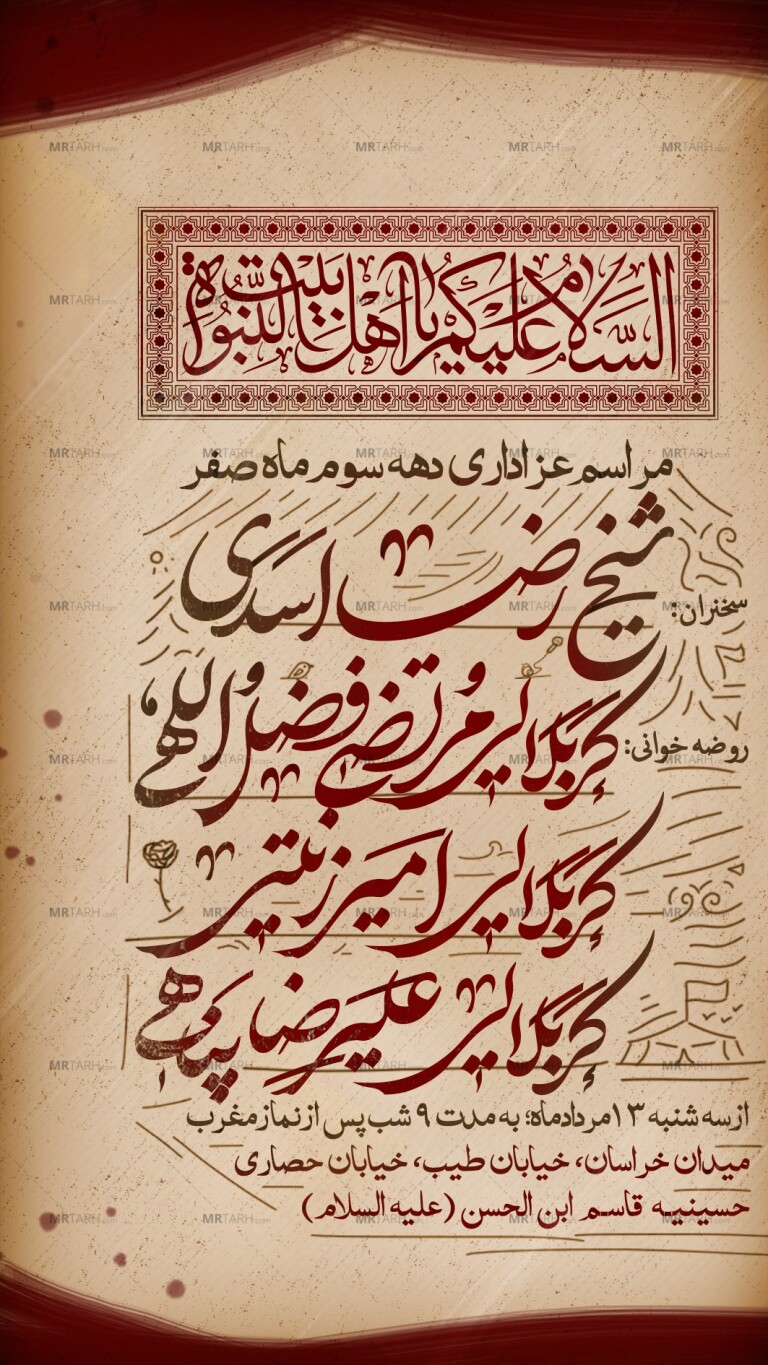 السلام علیکم یا اهل بیت النبوة
مراسم عزاداری دهه سوم ماه صفر
سخنران:
شیخ رضا اسدی
روضه خوانی:
کربلایی مرتضی فضل اللهی
کربلایی امیر زینتی
کربلایی علیرضا پناهی
از سه شنبه ۱۳ مردادماه؛ به مدت ۹ شب پس از نماز مغرب
میدان خراسان، خیابان طیب، خیابان حصاری
حسینیه قاسم ابن الحسن (علیه السلام)
MRTARH.com